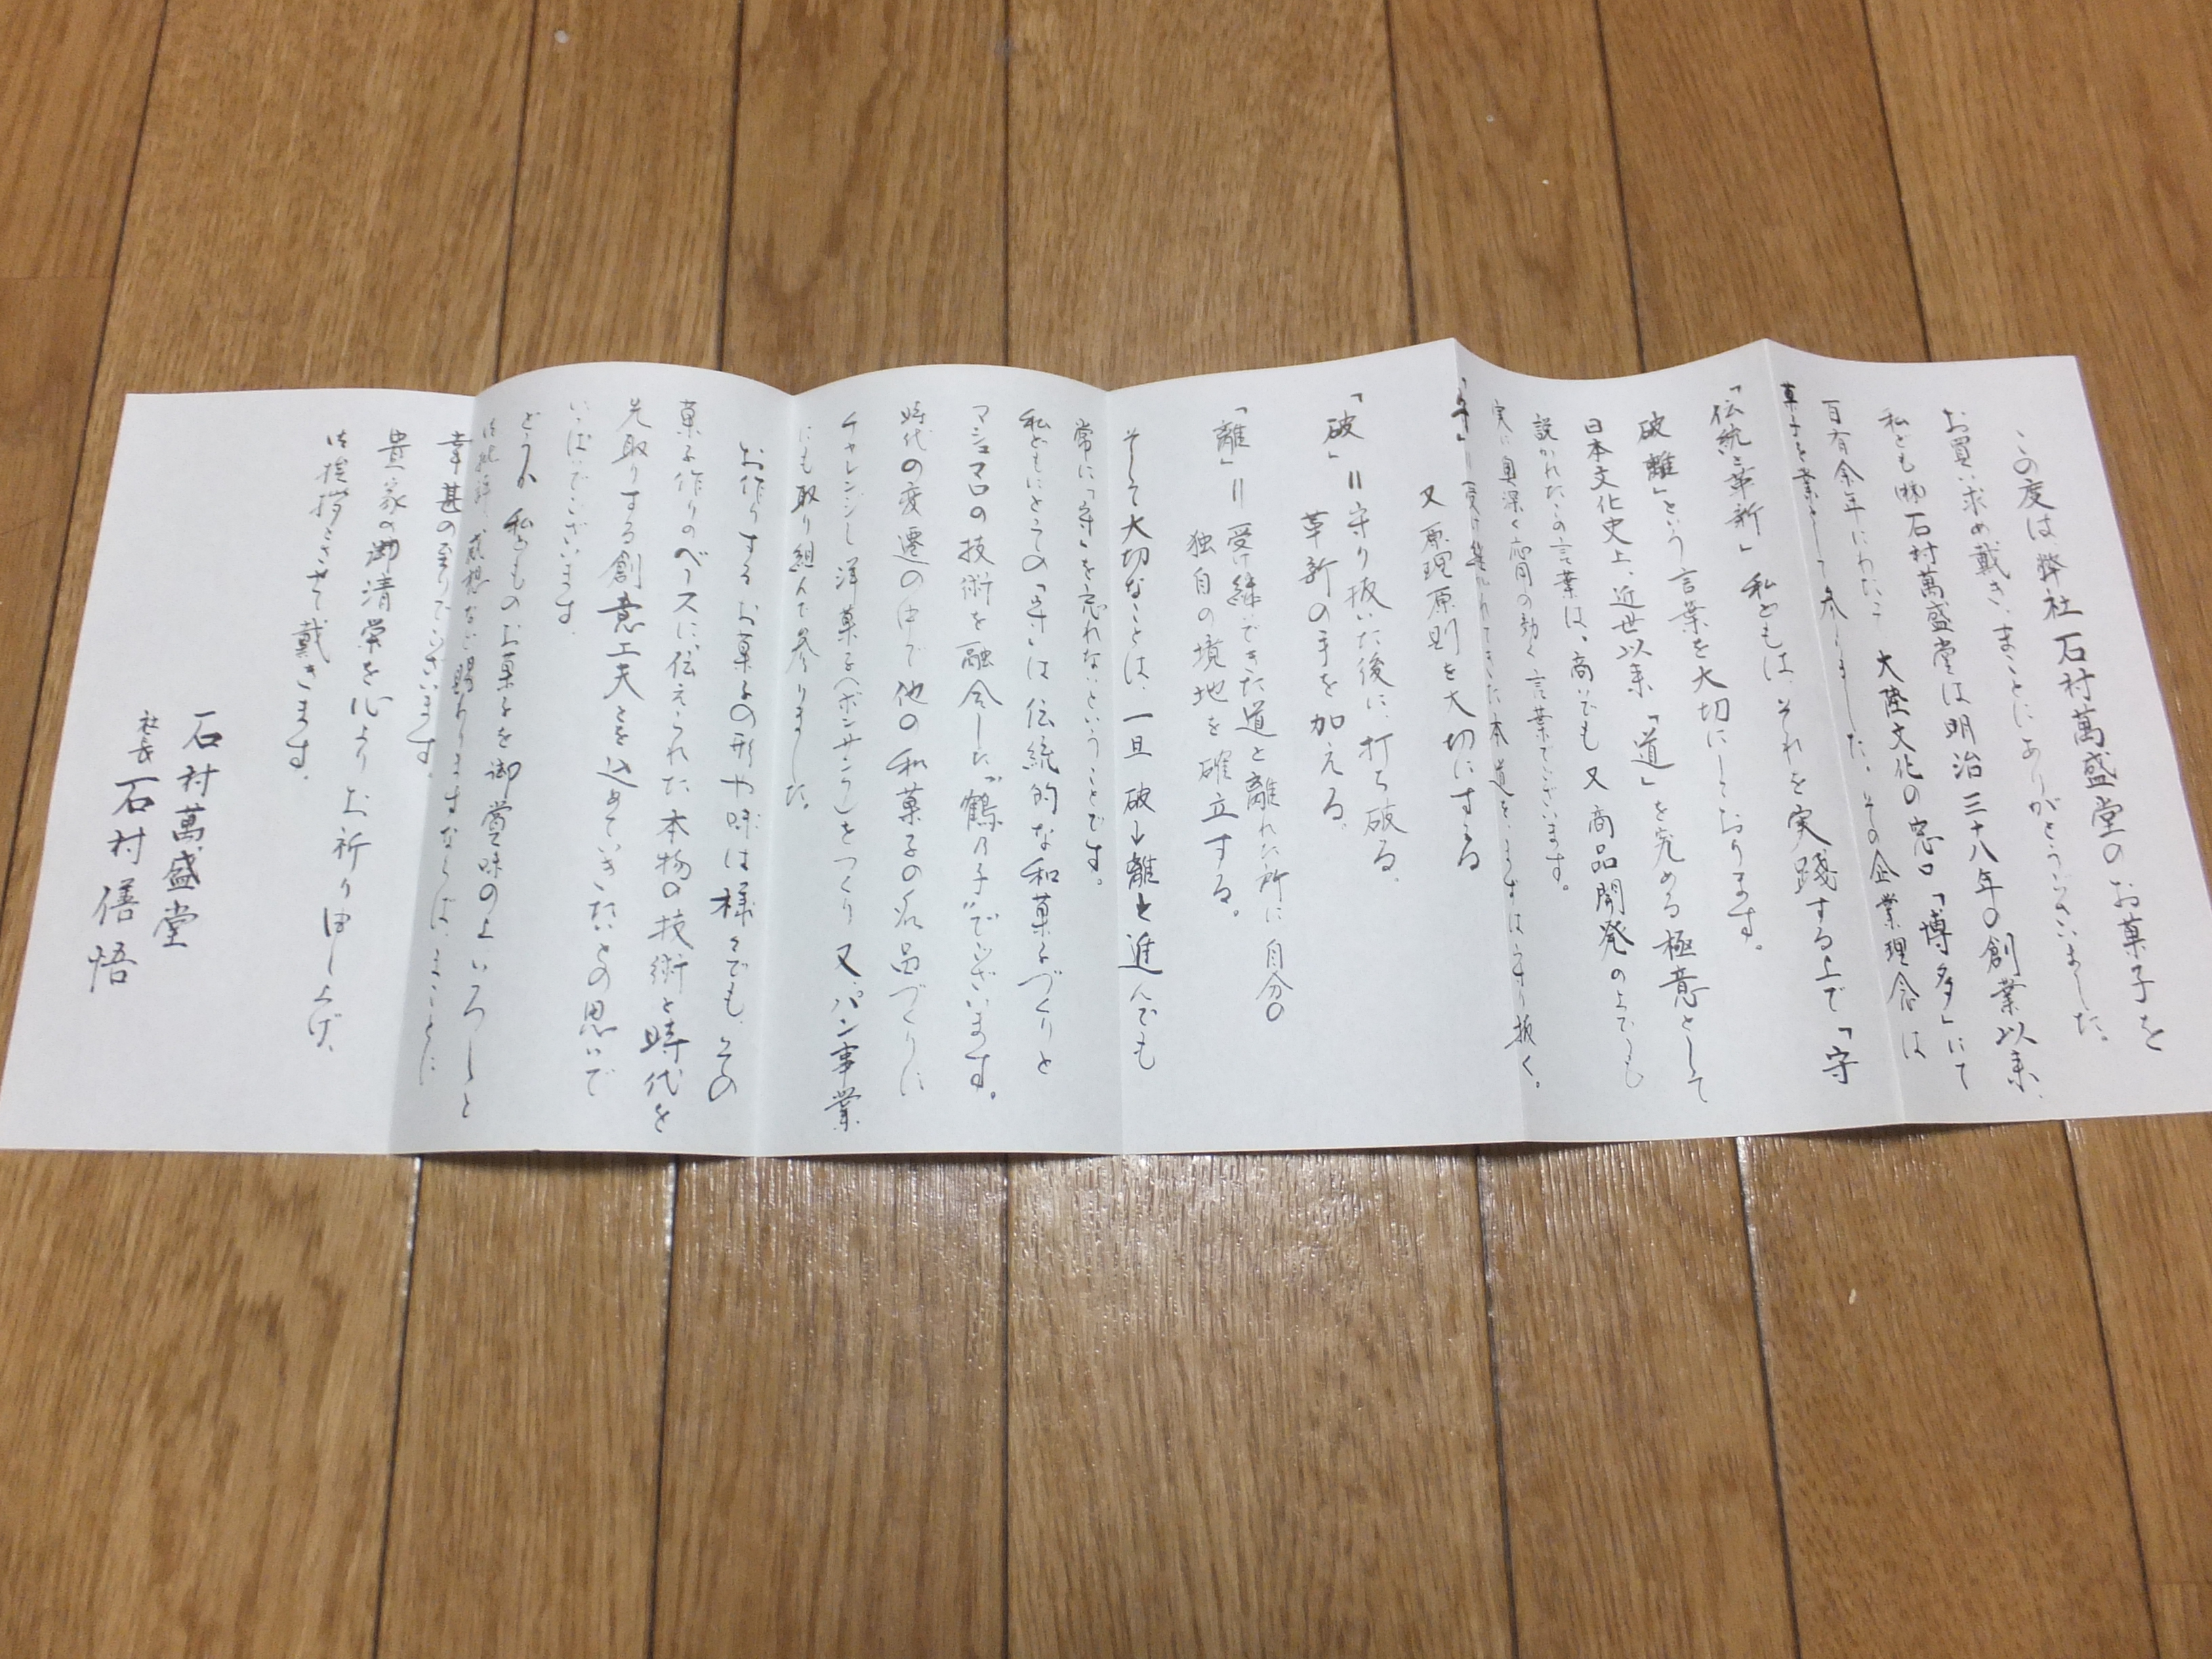 この度は弊社 石村萬盛堂のお菓子を
お買い求め戴き、まことにありがとうございました。
私ども㈱石村萬盛堂は明治三十八年の創業以来、
百有余年にわたって 大陸文化の窓口「博多」にて
菓子を業として参りました。その企業理念は
「伝統と革新」私どもは、それを実践する上で「守
破離」という言葉を大切にしております。
日本文化史上、近世以来「道」を究める極意として
説かれたこの言葉は、商いでも又商品開発の上でも
実に奥深く 含蓄の効く言葉でございます。
「守」＝受け継がれてきた本道をまずは守り抜く。
又 原理原則を大切にする
「破」＝守り抜いた後に、打ち破る。
革新の手を加える。
「離」＝受け継いできた道と離れた所に自分の
独自の境地を確立する。
そして大切なことは、一旦 破→離と進んでも
常に「守」を忘れないということです。
私どもにとっての「守」は 伝統的な和菓子づくりと
マシュマロの技術を融合した“鶴乃子”でございます。
時代の変遷の中で他の和菓子の逸品づくりに
チャレンジし 洋菓子(ボンサンク)をつくり 又、パン事業
にも取り組んで参りました。
お作りするお菓子の形や味は様々でも、その
菓子作りのベースに、伝えられた本物の技術と時代を
先取りする創意工夫とを込めていきたいとの思いで
いっぱいでございます。
どうか 私どものお菓子を御賞味の上 いろいろと
御批評、感想など賜わりますならば、まことに
幸甚の至りでございます。
貴家の御清栄を心よりお祈り申し上げ、
御挨拶とさせて戴きます。
石村萬盛堂
社長 石村僐悟